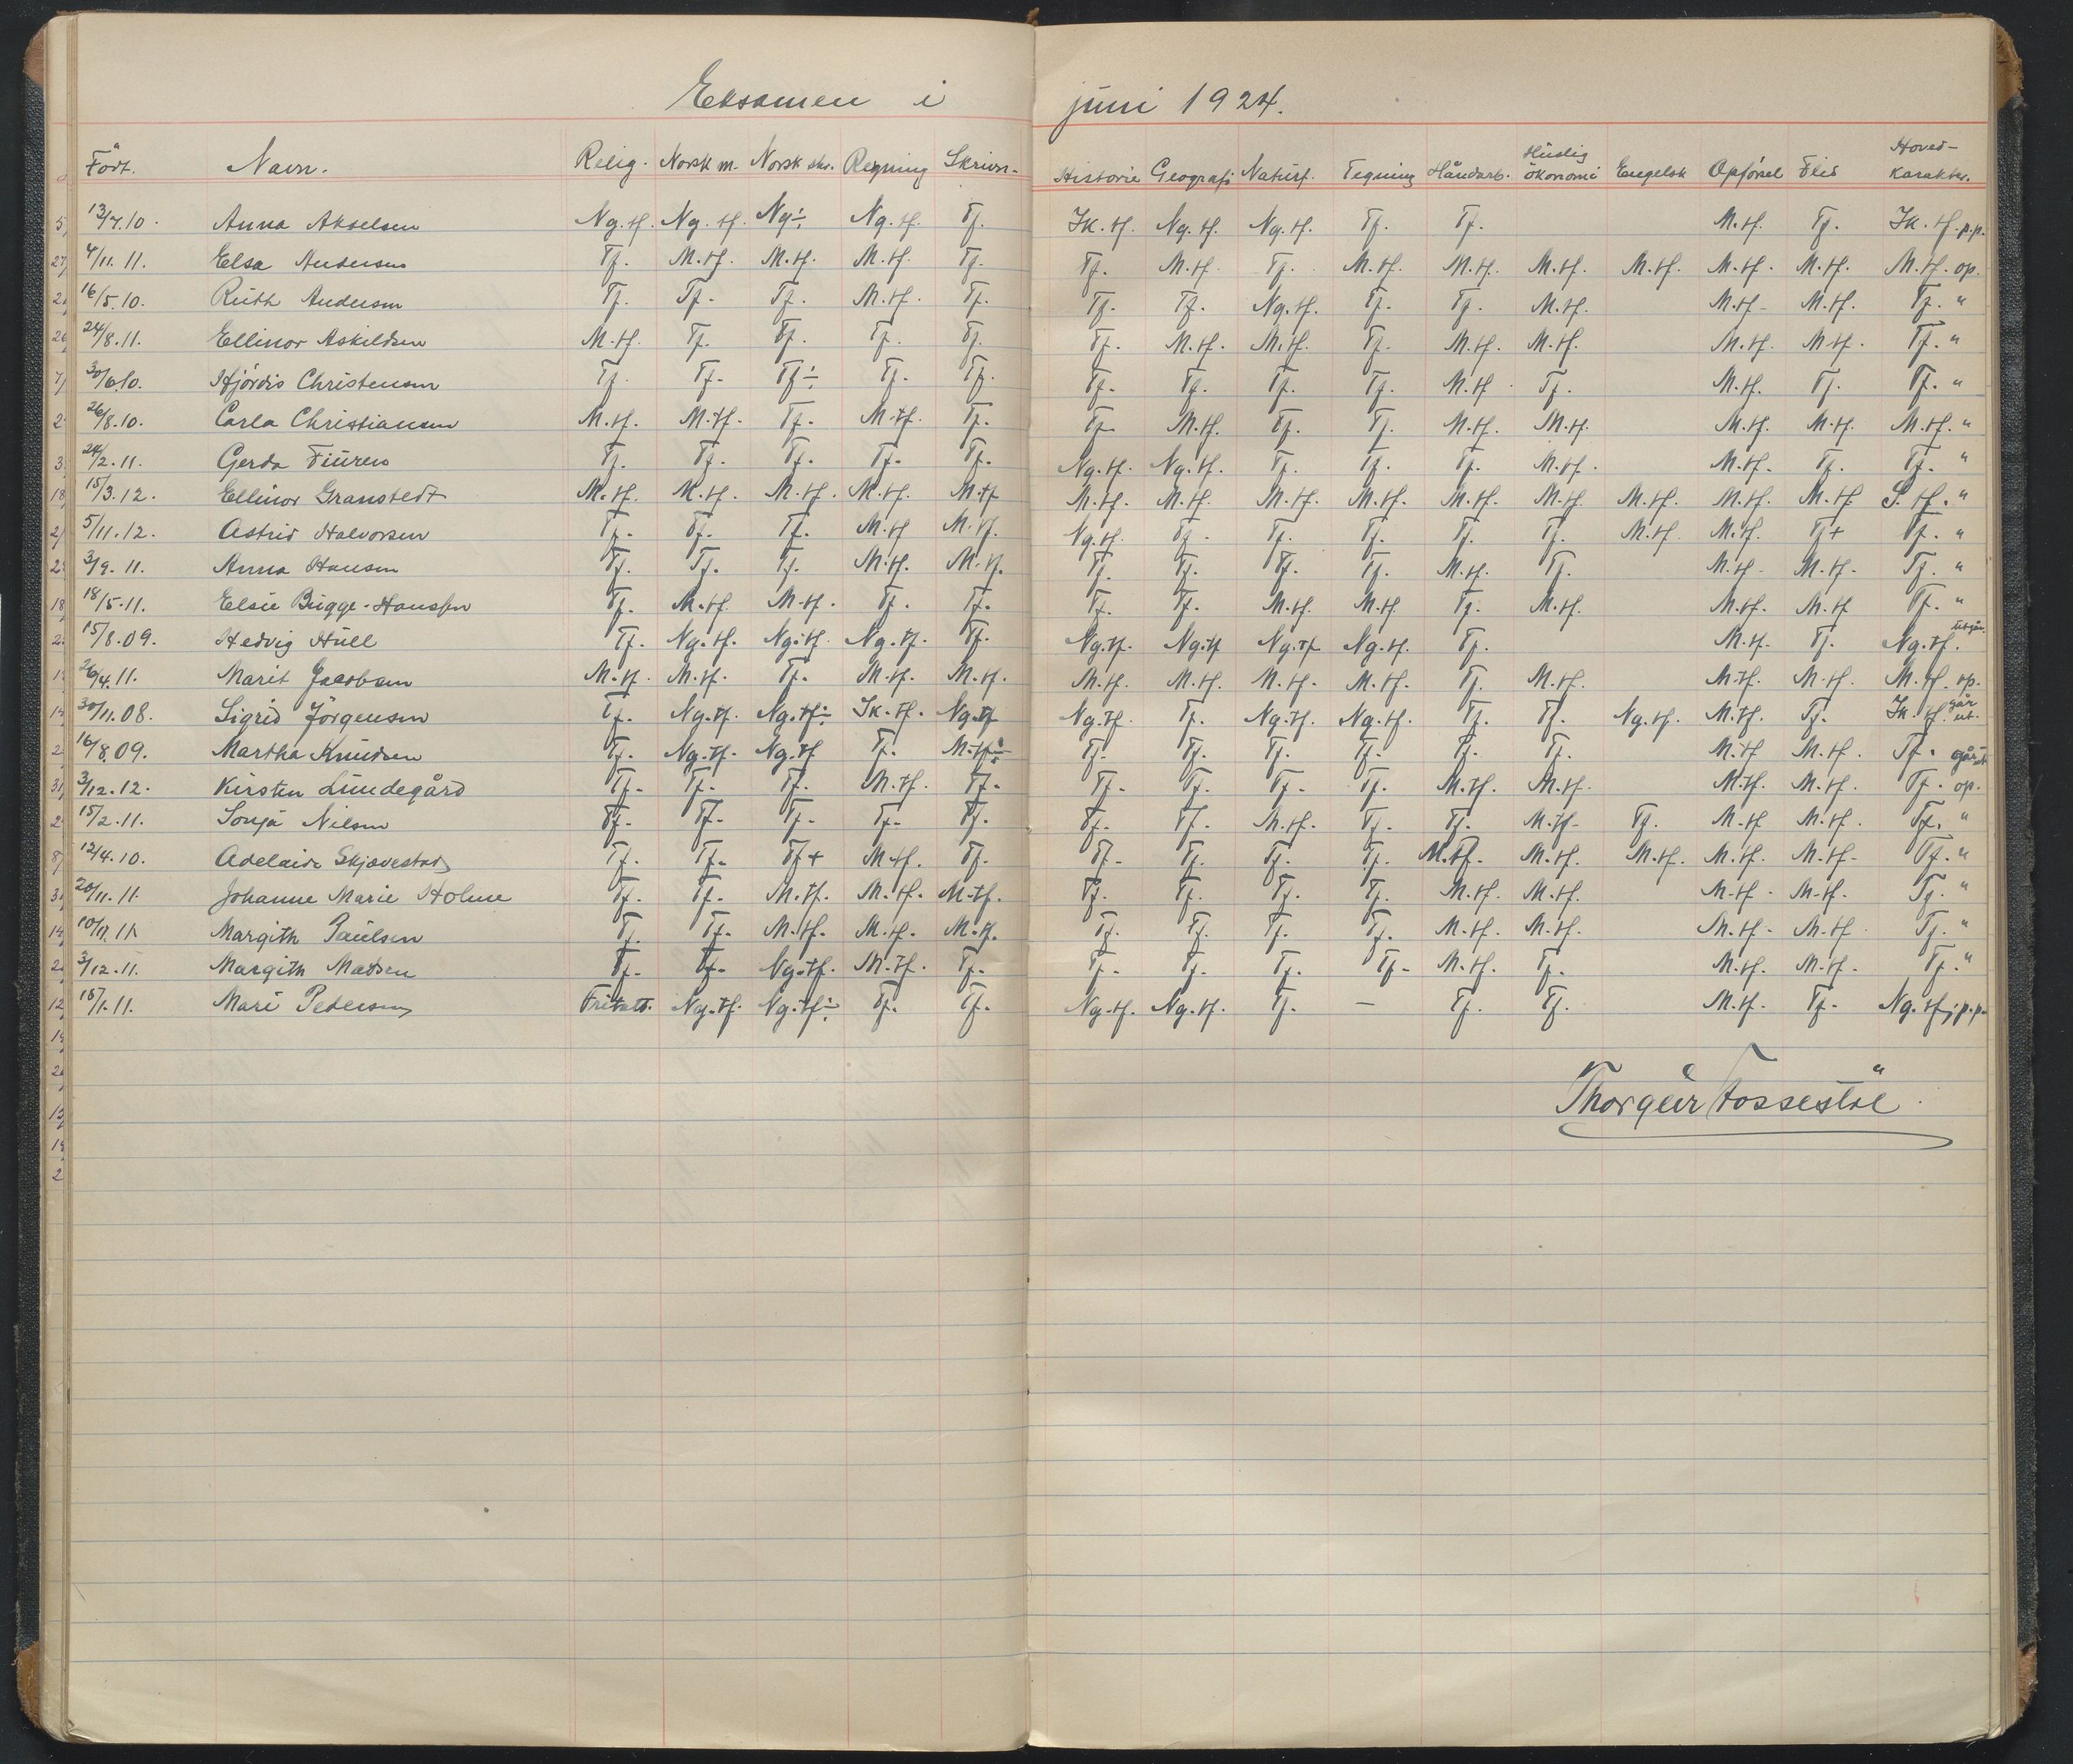 Eksamen i juni 1924.
Født. Navn. Relig. Norsk m. Norsk skr. Regning Skrivn. Historie Geografi Naturf. Tegning Håndarb. Huslig økonomi Engelsk Opførsel Flid Hoved-karakter.
13/7.10. Anna Akselsen Ng.tf. Ng.tf. Ng÷ Ng.tf. Tf. Ik.tf. Ng.tf. Ng.tf. Tf. Tf. M.tf. Tf. Ik.tf. p.p.
4/11.11. Elsa Andersen Tf. M.tf. M.tf. M.tf. Tf. Tf. M.tf. Tf. M.tf. M.tf. M.tf. M.tf. M.tf. M.tf. M.tf. op.
16/5.10. Ruth Andersen Tf. Tf. Tf. M.tf. Tf. Tf. Tf. Ng.tf. Tf. Tf. M.tf. M.tf. M.tf. Tf. "
24/8.11. Ellinor Askildsen M.tf. Tf. Tf. Tf. Tf. Tf. M.tf. M.tf. Tf. M.tf. M.tf. M.tf. M.tf. Tf. "
30/6.10. Hjørdis Christensen Tf. Tf. Tf÷ Tf. Tf. Tf. Tf. Tf. Tf. M.tf. Tf. M.tf. Tf. Tf. "
26/8.10. Carla Christiansen M.tf. M.tf. Tf. M.tf. Tf. Tf. M.tf. Tf. Tf. M.tf. M.tf. M.tf. M.tf. M.tf. "
24/2.11. Gerda Fiuren Tf. Tf. Tf. Tf. Tf. Ng.tf. Ng.tf. Tf. Tf. Tf. M.tf. M.tf. Tf. Tf. "
15/3.12. Ellinor Granstedt M.tf. M.tf. M.tf. M.tf. M.tf M.tf. M.tf. M.tf. M.tf. M.tf. M.tf. M.tf. M.tf. M.tf S.tf. "
5/11.12. Astrid Halvorsen Tf. Tf. Tf. M.tf M.tf. Ng.tf. Tf. Tf. Tf. Tf. Tf. M.tf. M.tf. Tf+ Tf. "
3/9.11. Anna Hansen Tf. Tf. Tf. M.tf. M.tf. Tf. Tf. Tf. Tf. M.tf. Tf. M.tf. M.tf. Tf. "
18/5.11. Elsie Bugge-Hanssen Tf. M.tf. M.tf. Tf. Tf. Tf. Tf. M.tf. M.tf Tf. M.tf. M.tf. M.tf Tf. "
15/8.09. Hedvig Hüll Tf. Ng.tf. Ng.tf. Ng.tf. Tf. Ng.tf. Ng.tf Ng.tf Ng.tf. Tf. M.tf. Tf. Ng.tf.
26/4.11. Marit Jacobsen M.tf. M.tf. Tf. M.tf. M.tf. M.tf. M.tf. M.tf. M.tf. Tf. M.tf. M.tf. M.tf. M.tf. op.
30/11.08. Sigrid Jørgensen Tf. Ng.tf. Ng.tf÷ Ik.tf. Ng.tf Ng.tf. Tf. Ng.tf. Ng.tf. Tf. Tf. Ng.tf. M.tf. Tf. Ik.tf. går ut.
16/8.09. Martha Knudsen Tf. Ng.tf. Ng.tf Tf. M.tf÷ Tf. Tf. Tf. Tf. Tf. Tf. M.tf M.tf. Tf. går ut
3/12.12. Kirsten Lundegård Tf. Tf. Tf. M.tf. Tf. Tf. Tf. Tf. Tf. M.tf. M.tf. M.tf. M.tf. Tf. op.
15/2.11. Sonja Nilsen Tf. Tf. Tf. Tf. Tf. Tf. Tf. M.tf. Tf. Tf. M.tf. Tf. M.tf M.tf. Tf. "
12/4.10. Adelaide Skjævestad Tf. Tf. Tf+ M.tf. Tf. Tf. Tf. Tf. Tf. M.tf. M.tf. M.tf. M.tf. M.tf. Tf. "
20/11.11. Johanne Marie Holme Tf. Tf. M.tf. M.tf. M.tf. Tf. Tf. Tf. Tf. M.tf. M.tf. M.tf. M.tf. Tf. "
10/11.11. Margith Paulsen Tf. Tf. M.tf. M.tf. M.tf. Tf. Tf. Tf. Tf. M.tf. M.tf. M.tf. M.tf. Tf. "
3/12.11. Margith Madsen Tf. Tf. Ng.tf. M.tf. Tf. Tf. Tf. Tf. Tf. M.tf. Tf. M.tf. M.tf. Tf. "
18/1.11. Mari Pedersen Fritatt. Ng.tf. Ng.tf÷ Tf. Tf. Ng.tf. Ng.tf. Tf. — Tf. Tf. M.tf. Tf. Ng.tf; p.p.
Thorgeir Fossestøl.